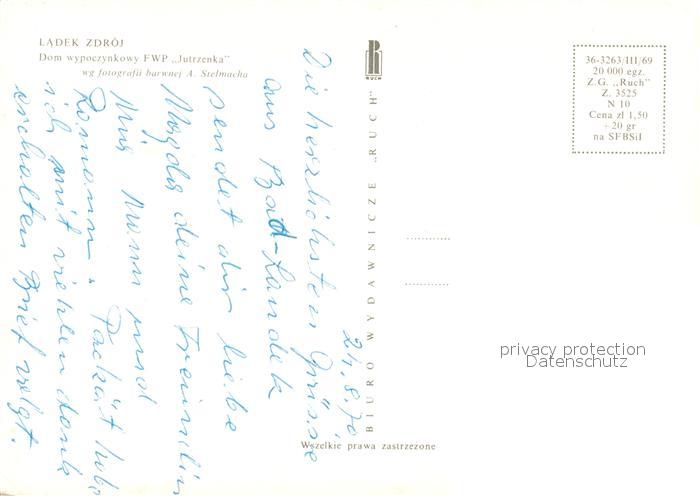 LĄDEK ZDRÓJ
Dom wypoczynkowy FWP „Jutrzenka"
wg fotografii barwnej A. Stelmacha
R
RUCH
BIURO WYDAWNICZE „RUCH"
36-3263/III/69
20 000 egz.
Z.G. „Ruch"
Z. 3525
N 10
Cena zł 1,50
+20 gr
na SFBSiI
24.8.70
Die herzlichsten Grüsse
aus Bad-Landek
sendet dir liebe
Magda deine Freindin
Mia Mann und
Romann. Packät habe
ich mit viehlen dank
erchalten Brief volgt.
privacy protection
Datenschutz
Wszelkie prawa zastrzeżone